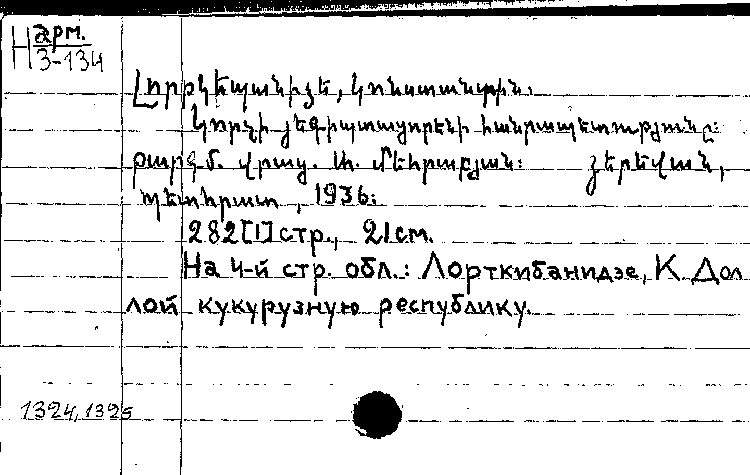 Н арм.
3-134
Լորթկեպանիձե, Կոնստանտին.
Կորչի յեգիպտացորենի հանրապետությունը:
թարգմ. վրաց. Ա. Մեհրաբյան: Յերեվան,
պետհրատ, 1936:
282[1] стр., 21 см.
На 4-й стр. обл.: Лорткибанидзе, К. Дол
лой кукурузную республику.
1324, 1325